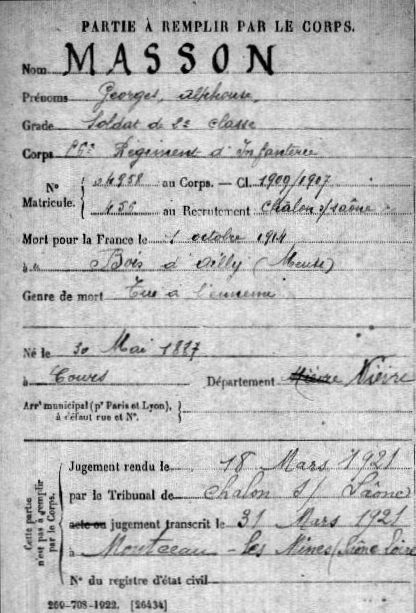 PARTIE À REMPLIR PAR LE CORPS.
Nom MASSON
Prénoms Georges, Alphonse,
Grade Soldat de 2e classe
Corps Régiment d'Infanterie
N° Matricule. 4958 au Corps. — Cl. 1909/1907
456 au Recrutement Châlon s/saône
Mort pour la France le octobre 1914
à Bois d'Ailly (Meuse)
Genre de mort Tué à l'ennemi
Né le 30 Mai 1887
à Cours Département Nièvre Nièvre
Arr' municipal (p' Paris et Lyon),
à défaut rue et N°.
Cette partie n'est pas à remplir par le Corps.
Jugement rendu le 18 Mars 1921
par le Tribunal de Chalon S/ Saône
acte ou jugement transcrit le 31 Mars 1921
à Montceau-les Mines (Saône Loire
N° du registre d'état civil
269-708-1922. [26434]